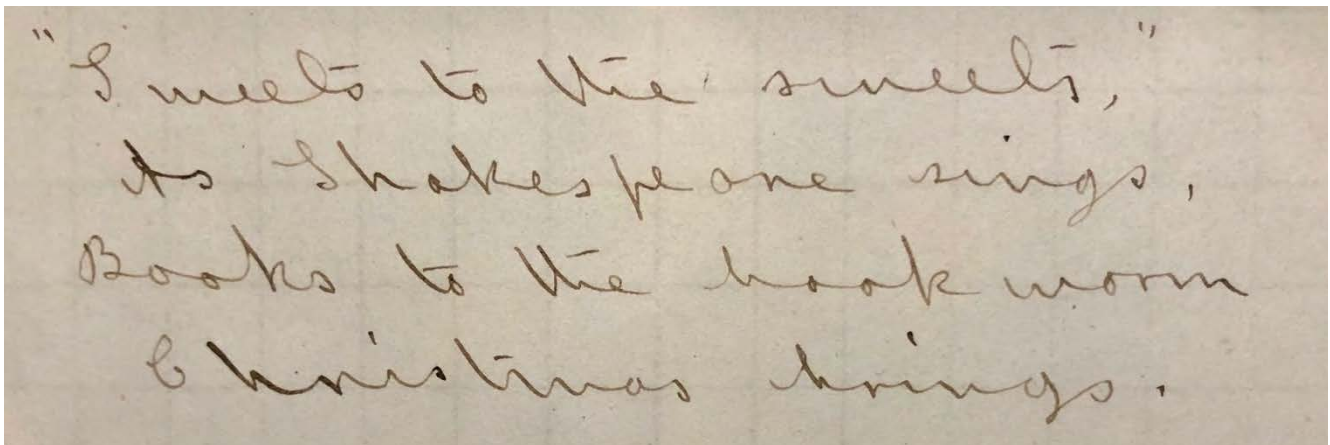 "Sweets to the sweets,"
As Shakespeare sings,
Books to the book worm
Christmas brings.